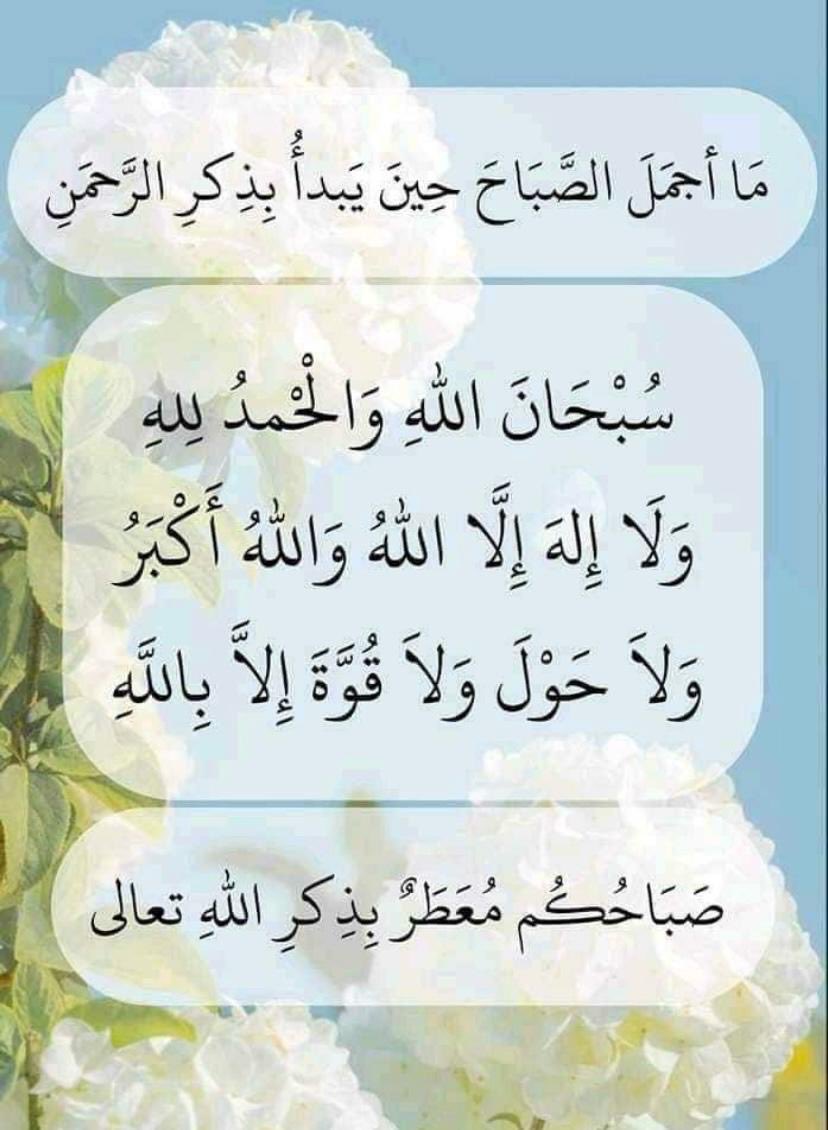 مَا أجمَلَ الصَّبَاحَ حِينَ يَبدأُ بِذِكرِ الرَّحمَنِ
سُبْحَانَ اللهِ وَالْحْمدُ لِلهِ
وَلَا إِلهَ إِلَّا اللهُ وَاللهُ أَكْبَرُ
وَلاَ حَوْلَ وَلاَ قُوَّةَ إِلاَّ بِاللَّهِ
صَبَاحُكُم مُعَطَرٌ بِذِكرِ اللهِ تعالى